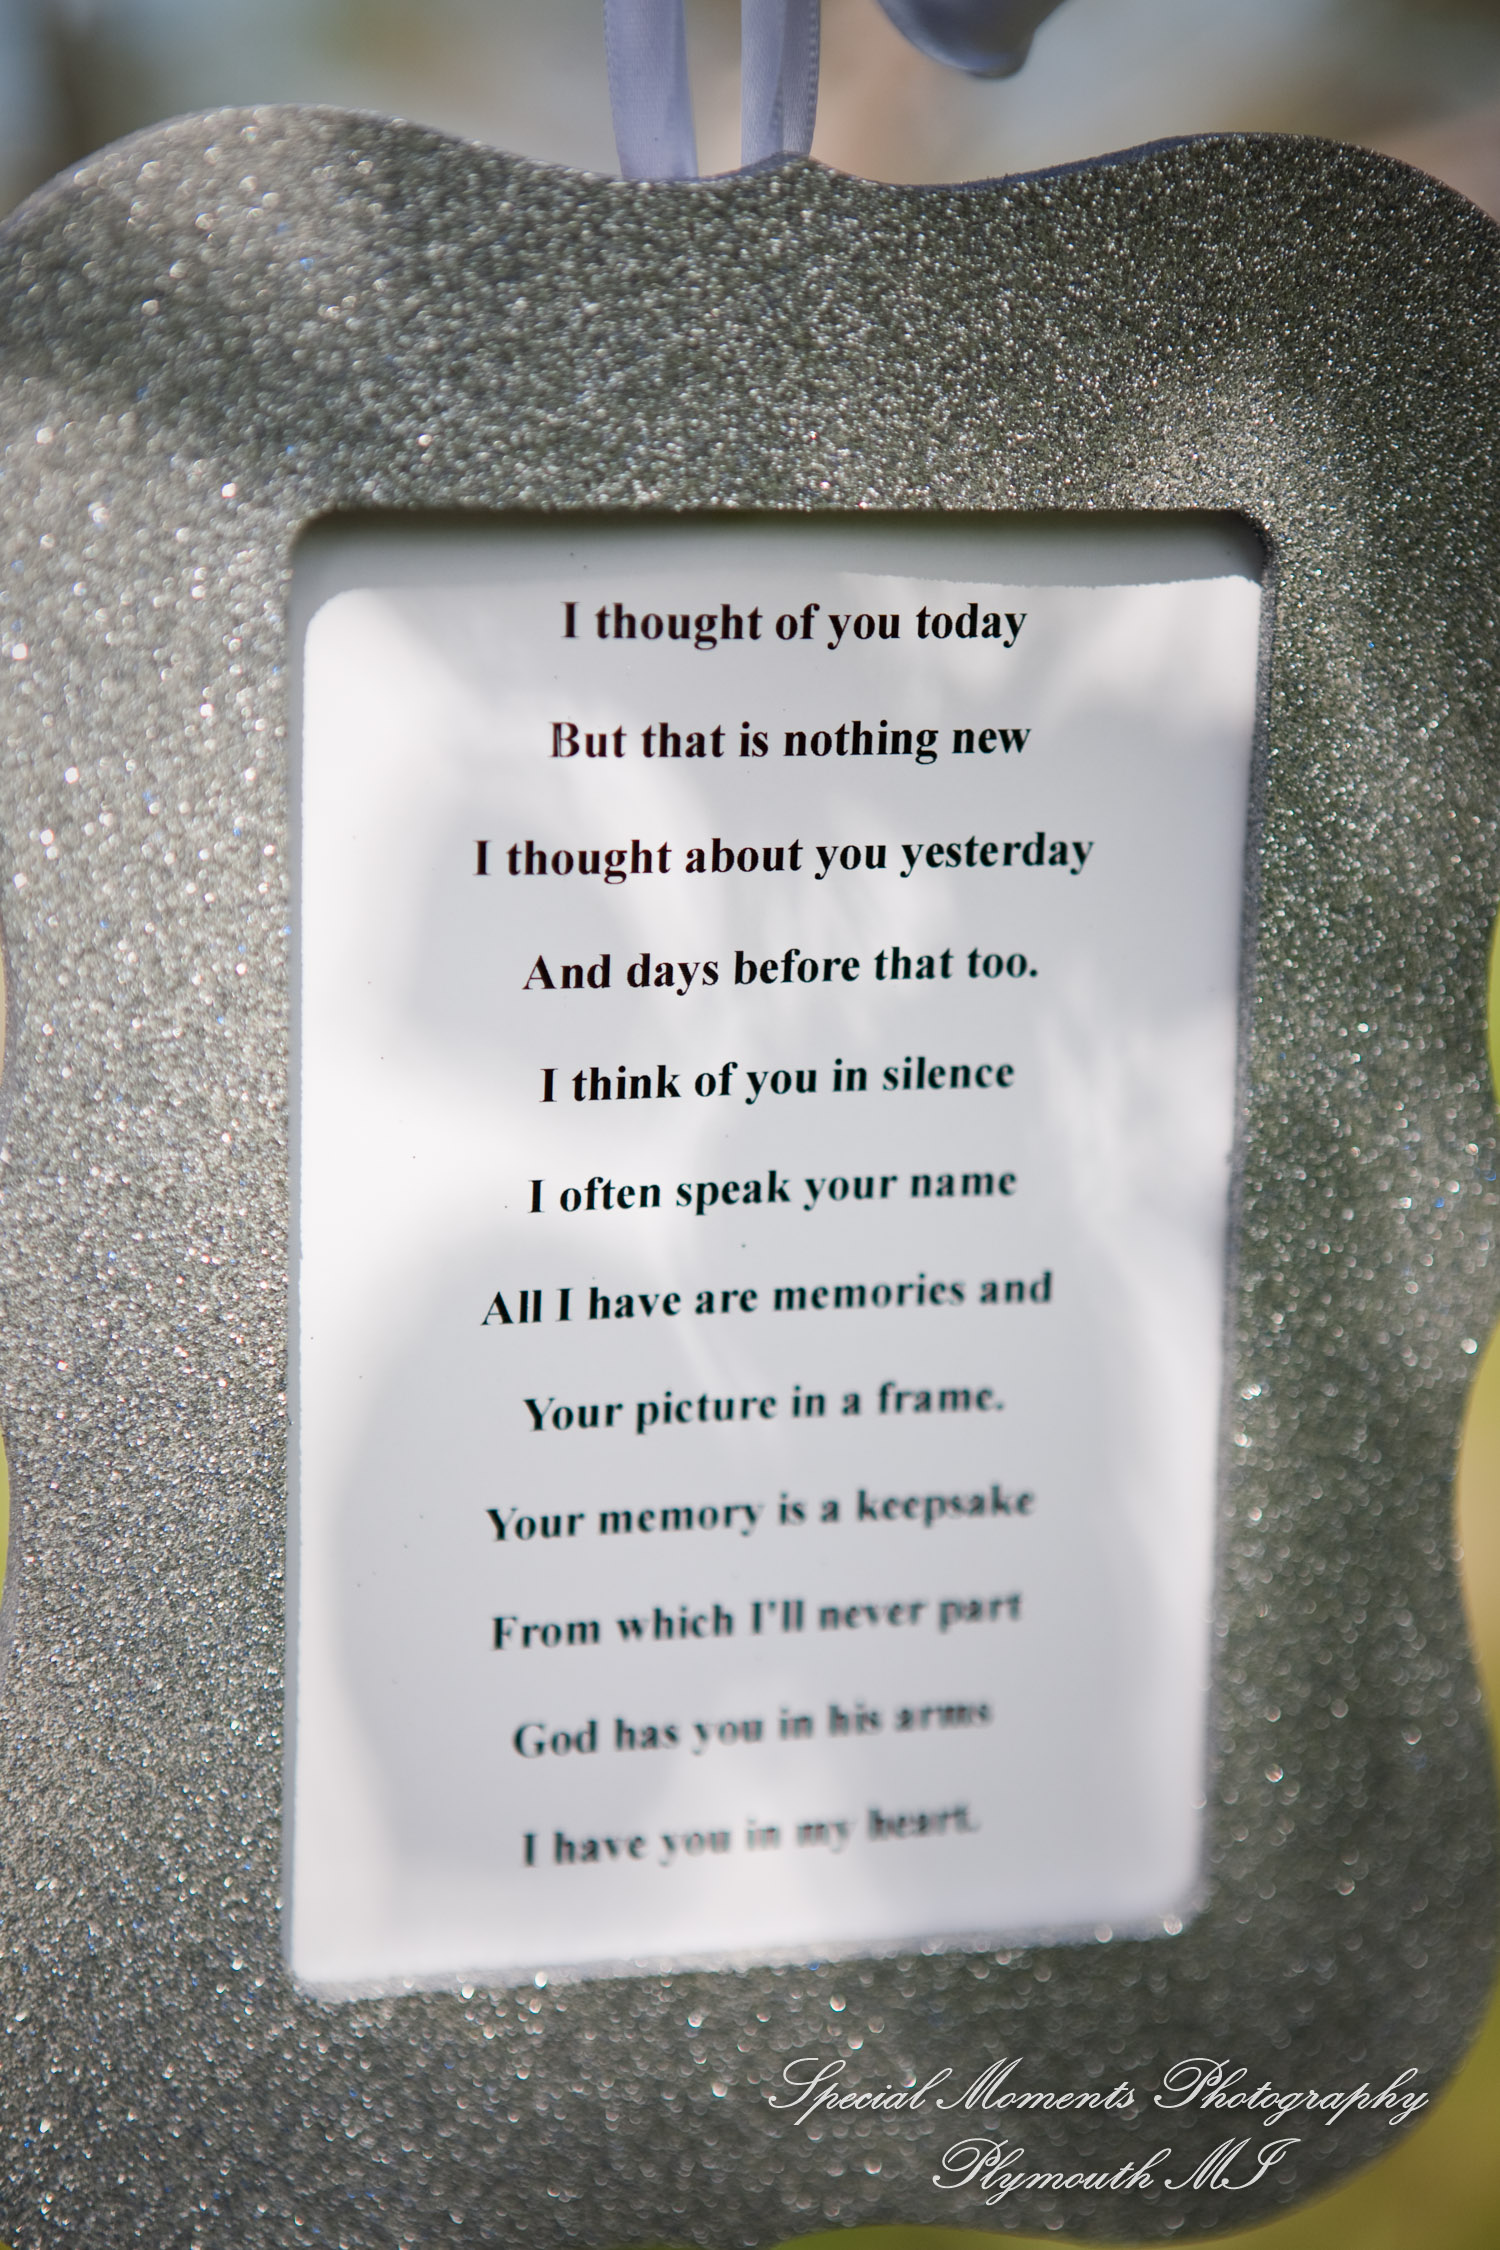 I thought of you today
But that is nothing new
I thought about you yesterday
And days before that too.
I think of you in silence
I often speak your name
All I have are memories and
Your picture in a frame.
Your memory is a keepsake
From which I'll never part
God has you in his arms
I have you in my heart.
Special Moments Photography
Plymouth MI